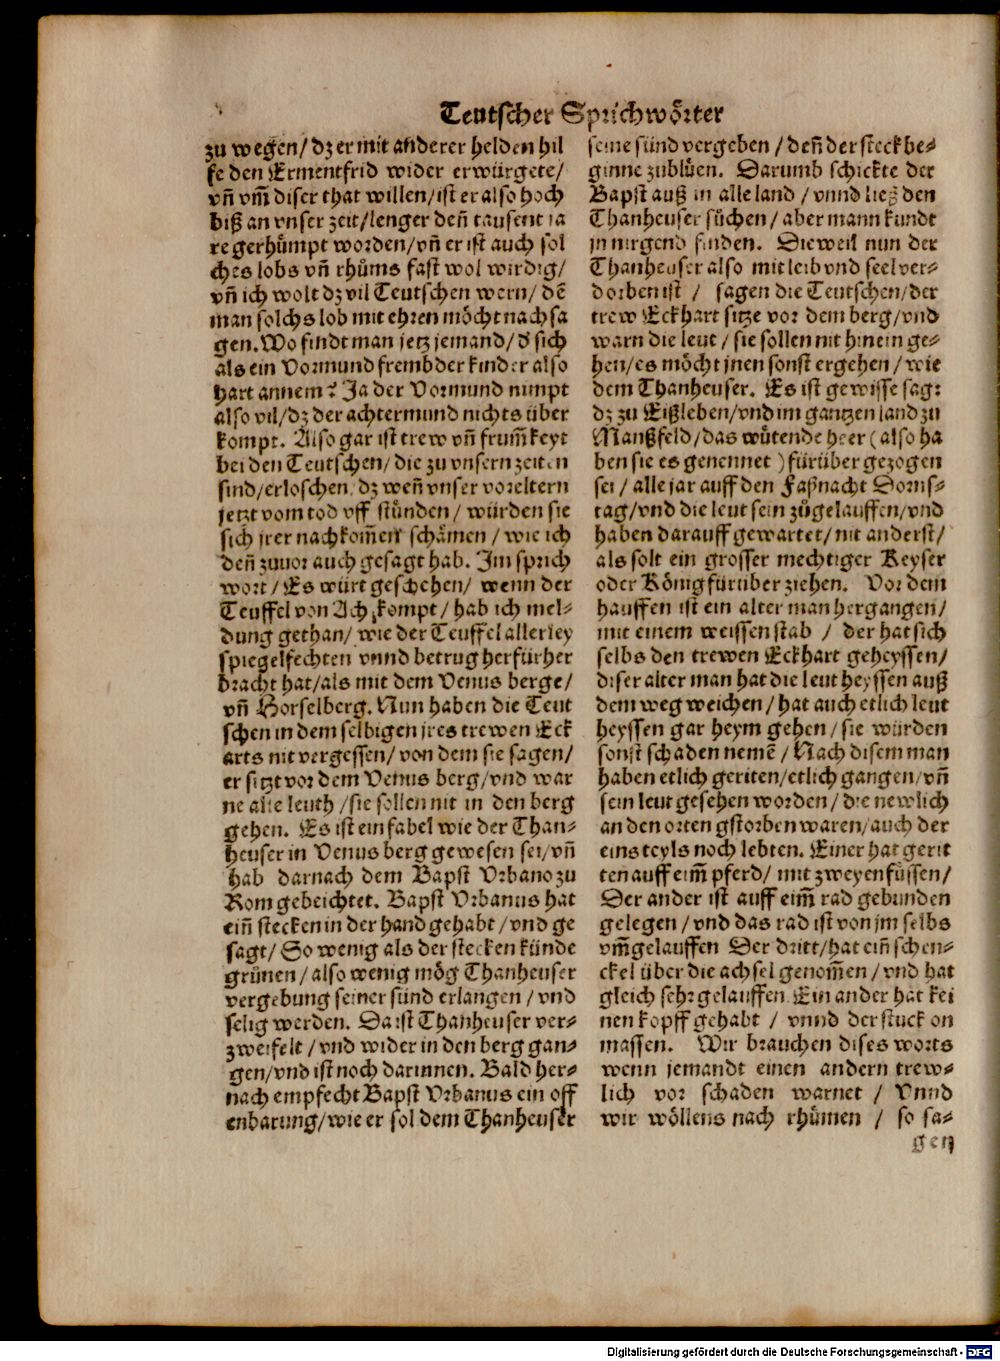 Teutscher Sprichwörter
zu wegen / dz er mit anderer helden hil
fe den Ermentfrid wider erwürgete /
vn̄ vm̄ diser that willen / ist er also hoch
biß an vnser zeit / lenger den̄ tausent ja
re gerhůmpt worden / vn̄ er ist auch sol
ches lobs vn̄ rhůms fast wol wirdig /
vn̄ ich wolt dz vil Teutschen wern / dē
man solchs lob mit ehren möcht nachsa
gen. Wo findt man jetz jemand / d' sich
als ein Vormund frembder kinder also
hart annem? Ja der Vormund nimpt
also vil / dz der achtermund nichts über
kompt. Also gar ist trew vn̄ frum̄keyt
bei den Teutschen / die zu vnsern zeiten
sind / erloschen / dz wen̄ vnser voreltern
jetzt vom tod vff stůnden / würden sie
sich jrer nachkom̄en schämen / wie ich
den̄ zuuor auch gesagt hab. Im sprich
wort / Es würt geschehen / wenn der
Teuffel von Ach kompt / hab ich mel-
dung gethan / wie der Teuffel allerley
spiegelfechten vnnd betrug herfürher
bracht hat / als mit dem Venus berge /
vn̄ Horselberg. Nun haben die Teut
schen in dem selbigen jres trewen Eck
arts nit vergessen / von dem sie sagen /
er sitzt vor dem Venus berg / vnd war
ne alle leuth / sie sollen nit in den berg
gehen. Es ist ein fabel wie der Than-
heuser in Venus berg gewesen sei / vn̄
hab darnach dem Bapst Vrbano zu
Rom gebeichtet. Bapst Vrbanus hat
ein̄ stecken in der hand gehabt / vnd ge
sagt / So wenig als der stecken künde
grünen / also wenig mög Thanheuser
vergebung seiner sünd erlangen / vnd
selig werden. Da ist Thanheuser ver-
zweifelt / vnd wider in den berg gan-
gen / vnd ist noch darinnen. Bald her-
nach empfecht Bapst Vrbanus ein off
enbarung / wie er sol dem Thanheuser
seine sünd vergeben / den̄ der steck be-
ginne zublůen. Darumb schickte der
Bapst auß in alle land / vnnd ließ den
Thanheuser sůchen / aber mann kundt
jn nirgend finden. Dieweil nun der
Thanheuser also mit leib vnd seel ver-
dorben ist / sagen die Teutschen / der
trew Eckhart sitze vor dem berg / vnd
warn die leut / sie sollen nit hinein ge-
hen / es möcht jnen sonst ergehen / wie
dem Thanheuser. Es ist gewisse sag:
dz zu Eißleben / vnd im gantzen land zu
Manßfeld / das wůtende heer (also ha
ben sie es genennet) fürüber gezogen
sei / alle jar auff den Faßnacht Dorns-
tag / vnd die leut sein zůgelauffen / vnd
haben darauff gewartet / nit anderst /
als solt ein grosser mechtiger Keyser
oder König fürüber ziehen. Vor dem
hauffen ist ein alter man hergangen /
mit einem weissen stab / der hat sich
selbs den trewen Eckhart geheyssen /
diser alter man hat die leut heyssen auß
dem weg weichen / hat auch etlich leut
heyssen gar heym gehen / sie würden
sonst schaden nemē / Nach disem man
haben etlich geriten / etlich gangen / vn̄
sein leut gesehen worden / die newlich
an den orten gstorben waren / auch der
eins teyls noch lebten. Einer hat gerit
ten auff eim̄ pferd / mit zweyen füssen /
Der ander ist auff eim̄ rad gebunden
gelegen / vnd das rad ist von jm selbs
vm̄gelauffen Der dritt / hat ein̄ schen-
ckel über die achsel genom̄en / vnd hat
gleich sehr gelauffen. Ein ander hat kei
nen kopff gehabt / vnnd der stuck on
massen. Wir brauchen dises worts
wenn jemandt einen andern trew-
lich vor schaden warnet / Vnnd
wir wöllens nach rhůmen / so sa-
gen
Digitalisierung gefördert durch die Deutsche Forschungsgemeinschaft - DFG